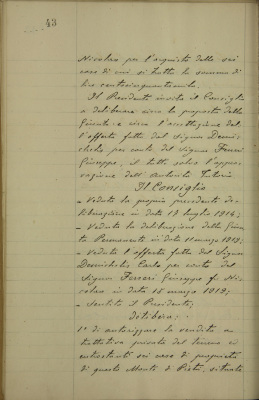 43
Nicolao per l'acquisto delle sei
case di cui si tratta la somma di
lire centocinquantamila.
Il Presidente invita il Consiglio
a deliberare circa la proposta della
Giunta e circa l'accettazione del
l'offerta fatta dal Signor Demi-
chelis, per conto del Signor Ferreri
Giuseppe, il tutto salvo l'appro-
vazione dell'Autorità Tutoria
Il Consiglio
- Veduta la propria precedente de-
liberazione in data 17 luglio 1914;
- Veduta la deliberazione della Giun-
ta Permanente in data 11 marzo 1919;
- Veduta l'offerta fatta dal Signor
Demichelis Carlo per conto del
Signor Ferreri Giuseppe fu Nic-
olao in data 15 marzo 1919;
- Sentito il Presidente;
Delibera:
1° di autorizzare la vendita a
trattativa privata del terreno ed
entrostanti sei case di proprietà
di questo Monte di Pietà, situate